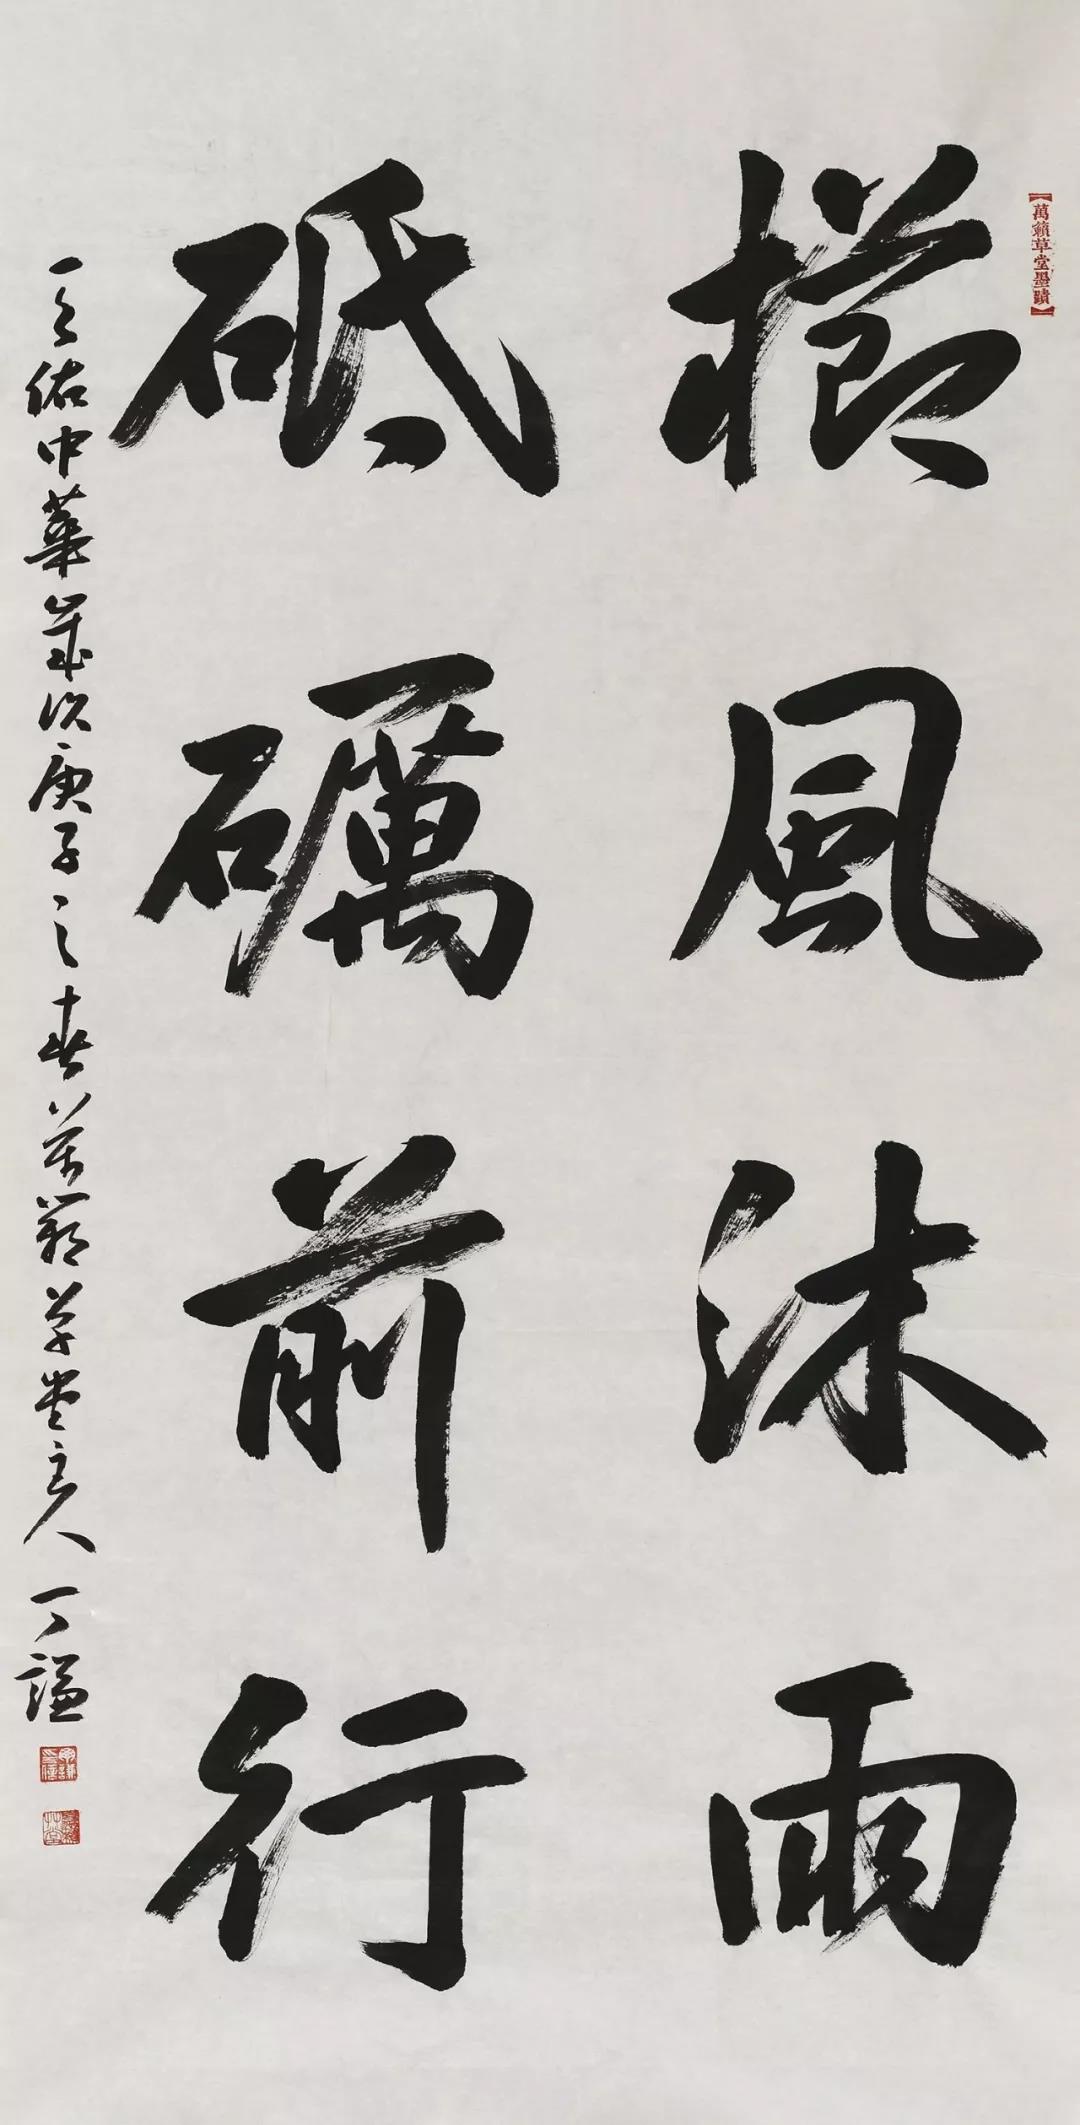 【萬籟草堂墨蹟】
櫛風沐雨
砥礪前行
天佑中華歲次庚子之春萬籟草堂主人丁謙